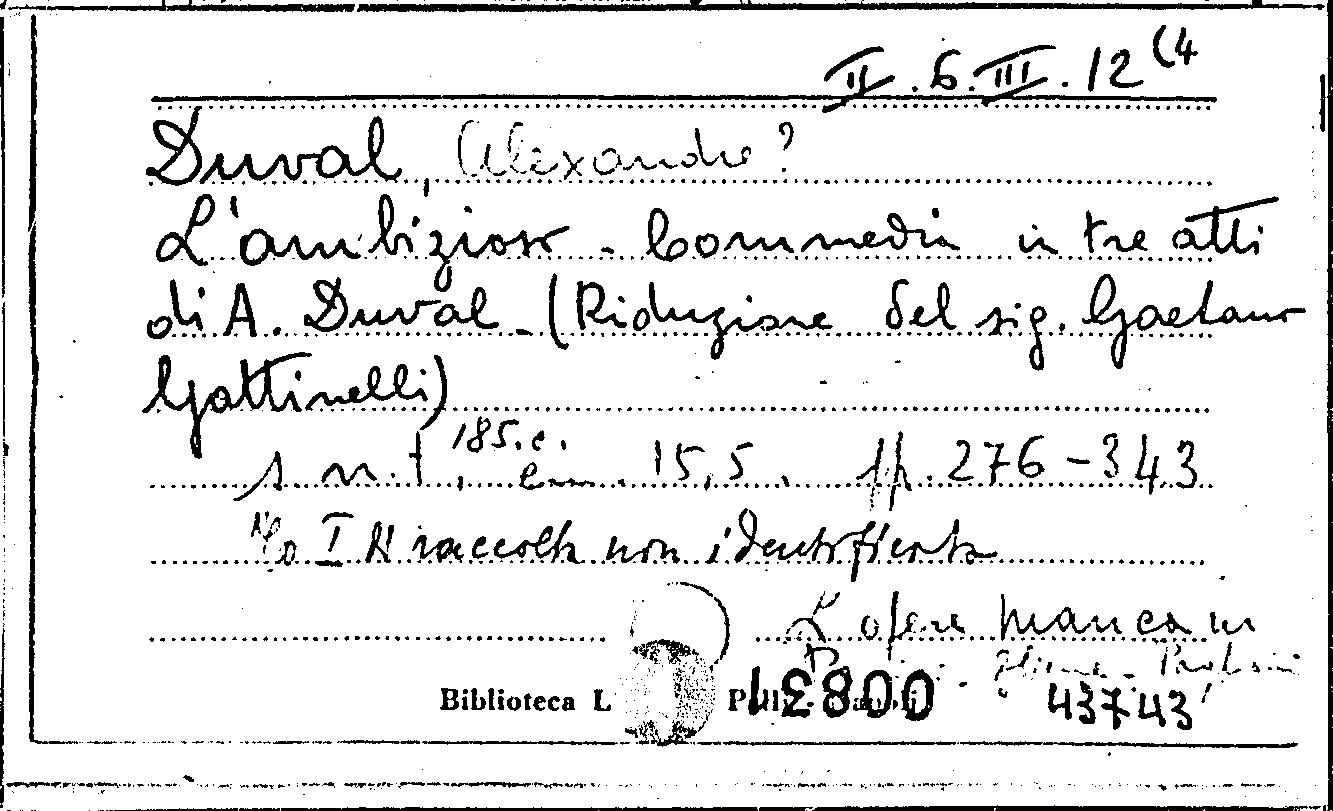 II.6.III.12(4
Duval, Alexandre?
L'ambizioso - Commedia in tre atti
di A. Duval - (Riduzione del sig. Gaetano
Gattinelli)
s.n.t., 185.c. cm. 15,5. pp. 276-343
No I di raccolta non identificata
L'opera manca in
Biblioteca L P
43743